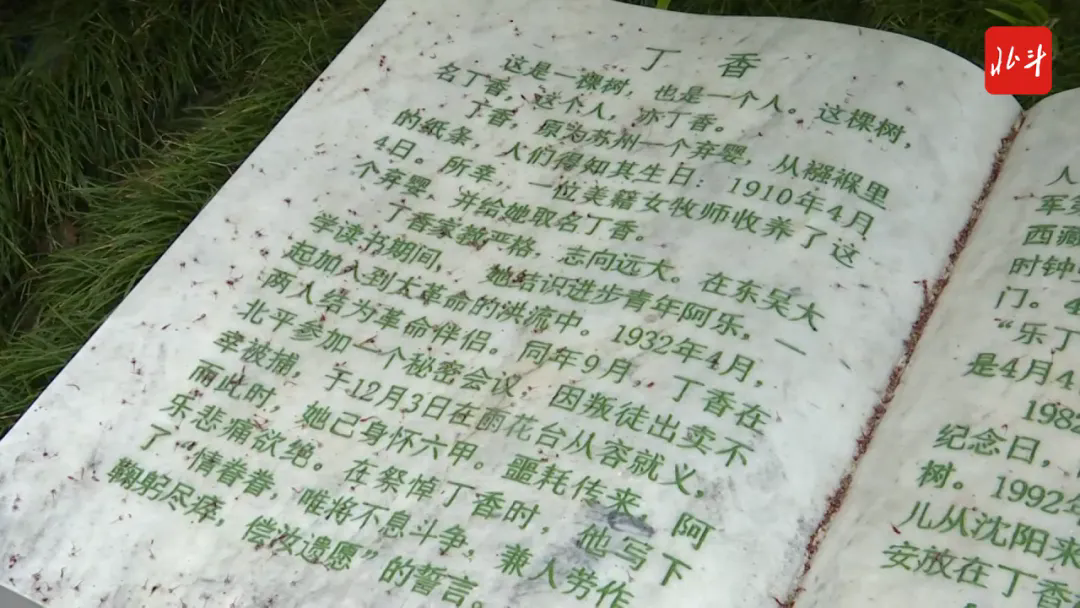 北斗
丁 香
这是一棵树，也是一个人。这棵树，
名丁香，这个人，亦丁香。
丁香，原为苏州一个弃婴，从襁褓里
的纸条，人们得知其生日：1910年4月
4日。所幸，一位美籍女牧师收养了这
个弃婴，并给她取名丁香。
丁香家教严格，志向远大。在东吴大
学读书期间，她结识进步青年阿乐，一
起加入到大革命的洪流中。1932年4月，
两人结为革命伴侣。同年9月，丁香在
北平参加一个秘密会议，因叛徒出卖不
幸被捕，于12月3日在雨花台从容就义，
而此时，她已身怀六甲。噩耗传来，阿
乐悲痛欲绝。在祭悼丁香时，他写下
了“情眷眷，唯将不息斗争，兼人劳作
鞠躬尽瘁，偿汝遗愿”的誓言。
人
军
西藏
时钟
门。4
“乐丁
是4月4
1982
纪念日，
树。1992年
儿从沈阳来
安放在丁香